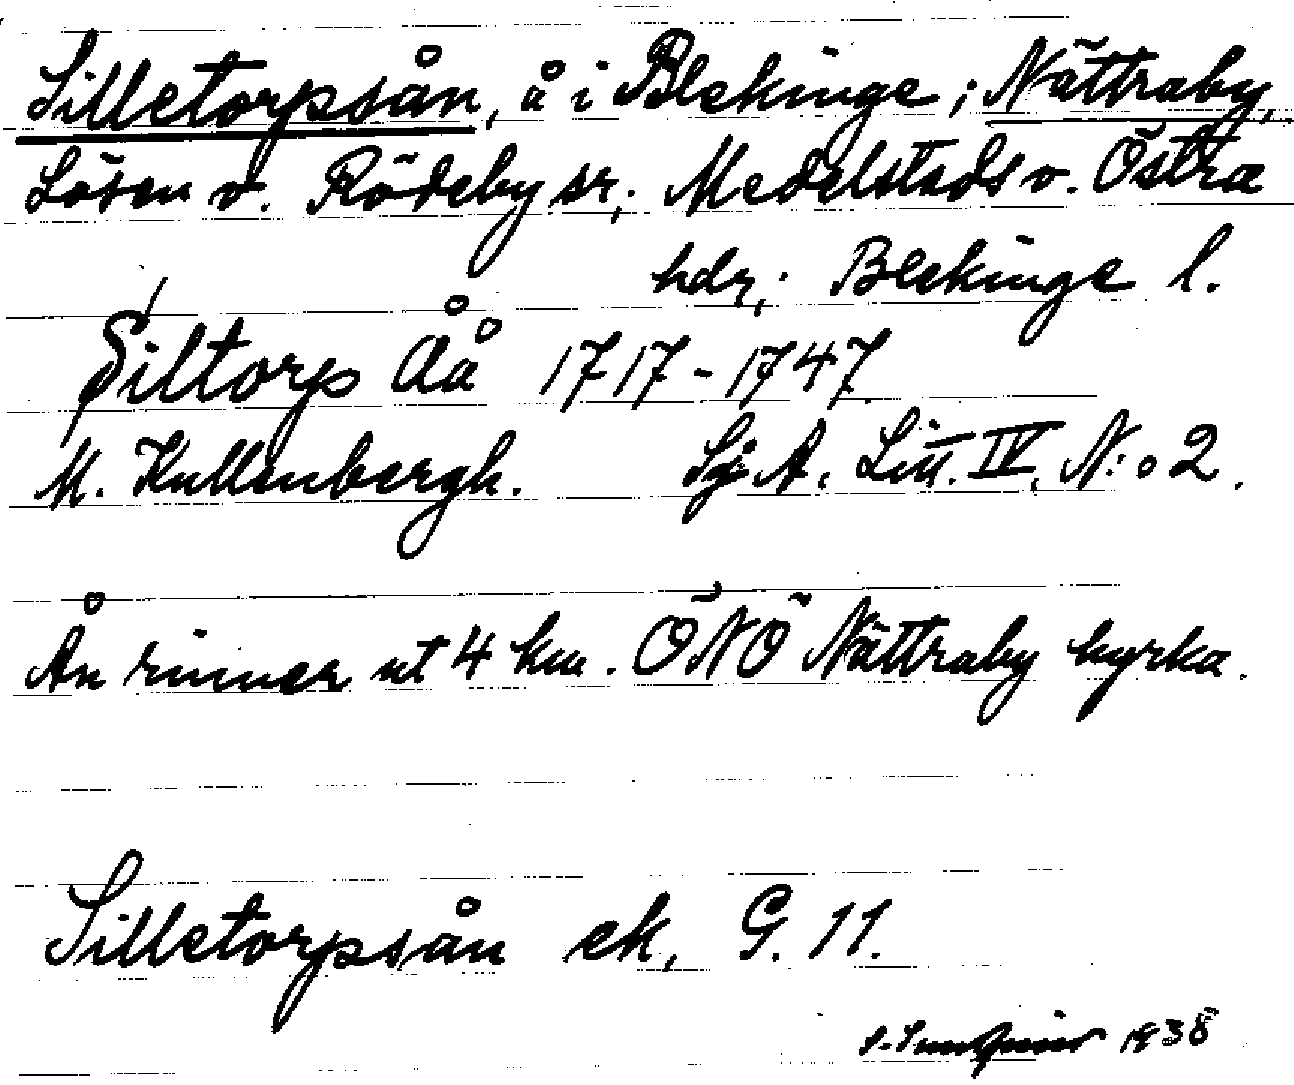 Silletorpsån, å i Blekinge; Nättraby,
Lösen o. Rödeby sr; Medelstads o. Östra
hdr; Blekinge l.
Siltorp Åå 1717-1747
M. Kullenbergh. Sj. A. Litt. IV. N:o 2.
Ån rinner ut 4 km. ÖNÖ Nättraby kyrka.
Silletorpsån ek. G. 11.
1938